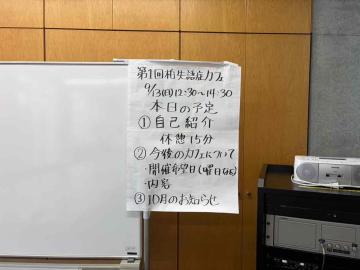 第1回柏失語症カフェ
9/13(日)12:30〜14:30
本日の予定
①自己紹介
休憩15分
②今後のカフェについて
・開催希望日(曜日など)
・内容
③10月のお知らせ